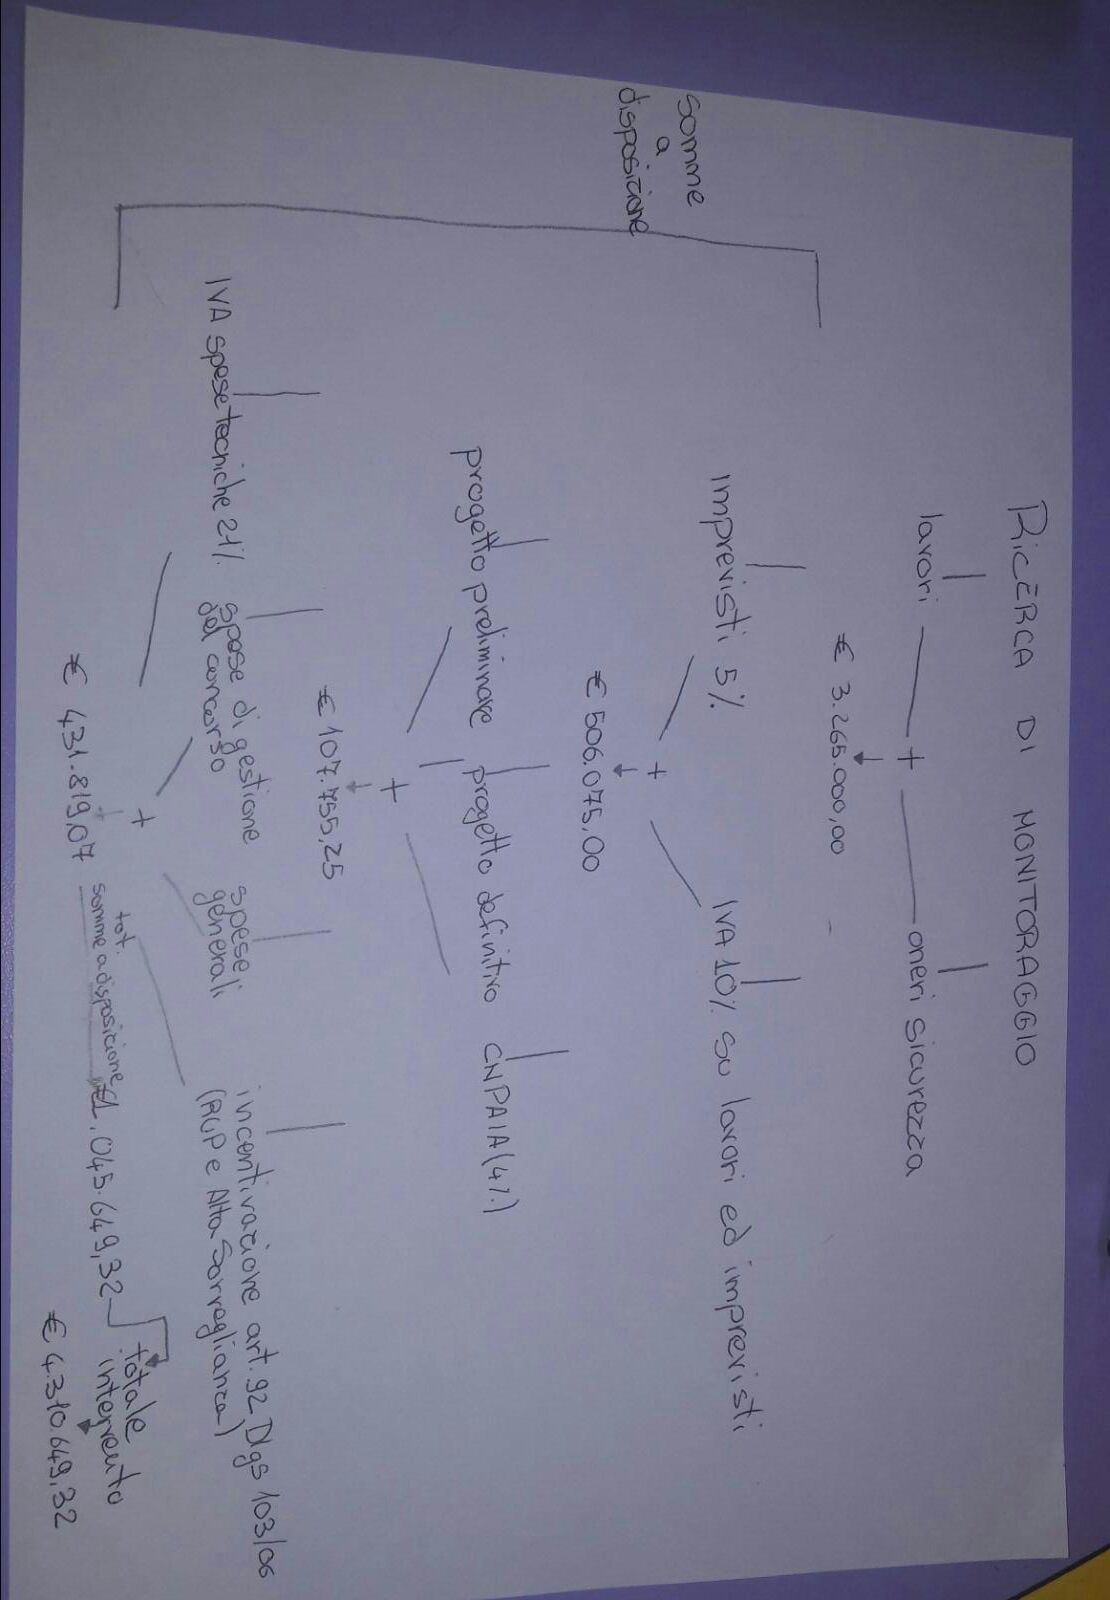 RICERCA DI MONITORAGGIO
lavori + oneri sicurezza
€ 3.265.000,00
somme
a
disposizione
imprevisti 5% + IVA 10% su lavori ed imprevisti
€ 506.075,00
progetto preliminare progetto definitivo CNPAIA (4%)
+
€ 107.755,25
IVA spese tecniche 21% spese di gestione spese incentivazione art. 92 Dlgs 103/06
del concorso generali (RUP e Alta Sorveglianza)
+
€ 431.819,07 tot.
somme a disposizione €1.045.649,32 totale
intervento
€ 4.310.649,32